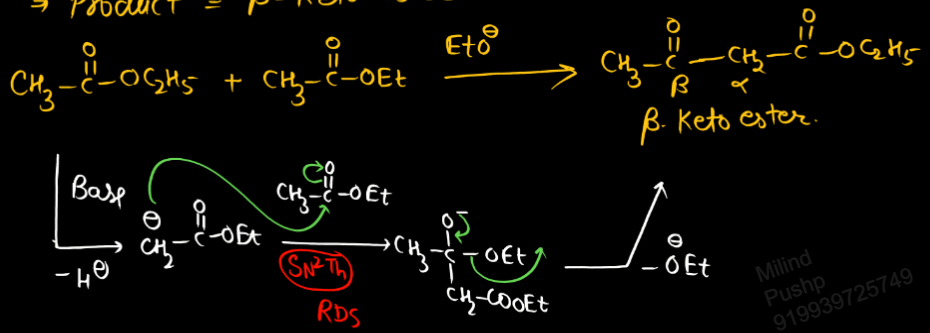 → Product = β-Keto
CH₃–C(=O)–OC₂H₅ + CH₃–C(=O)–OEt —EtO⊖→ CH₃–C(=O)–CH₂–C(=O)–OC₂H₅
β α
β-Keto ester.
Base
–H⊕
⊖CH₂–C(=O)–OEt
CH₃–C(=O)–OEt
SN²Th
RDS
CH₃–C(O⁻)–OEt
CH₂–COOEt
–⊖OEt
Milind
Pushp
919939725749